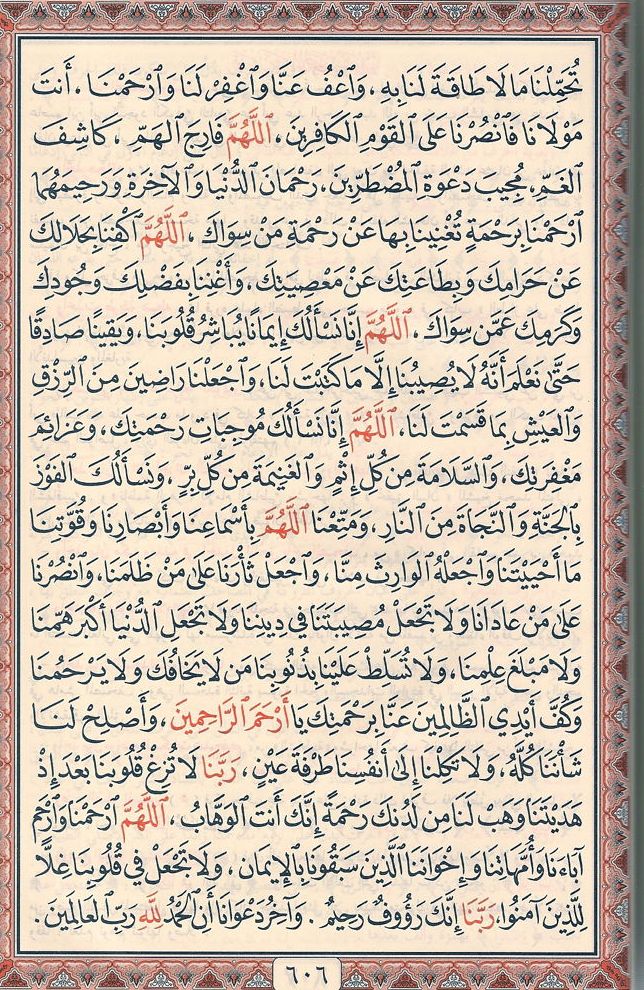 تُحَمِّلْنَا مَا لَا طَاقَةَ لَنَا بِهِ ، وَٱعْفُ عَنَّا وَٱغْفِرْ لَنَا وَٱرْحَمْنَا ، أَنتَ
مَوْلَانَا فَٱنْصُرْنَا عَلَى ٱلْقَوْمِ ٱلْكَافِرِينَ ، ٱللَّهُمَّ فَارِجَ ٱلْهَمِّ ، كَاشِفَ
ٱلْغَمِّ ، مُجِيبَ دَعْوَةِ ٱلْمُضْطَرِّينَ ، رَحْمَانَ ٱلدُّنْيَا وَٱلْآخِرَةِ وَرَحِيمَهُمَا
ٱرْحَمْنَا بِرَحْمَةٍ تُغْنِينَا بِهَا عَنْ رَحْمَةِ مَنْ سِوَاكَ ، ٱللَّهُمَّ ٱكْفِنَا بِحَلَالِكَ
عَنْ حَرَامِكَ وَبِطَاعَتِكَ عَنْ مَعْصِيَتِكَ ، وَأَغْنِنَا بِفَضْلِكَ وَجُودِكَ
وَكَرَمِكَ عَمَّن سِوَاكَ ، ٱللَّهُمَّ إِنَّا نَسْأَلُكَ إِيمَانًا يُبَاشِرُ قُلُوبَنَا ، وَيَقِينًا صَادِقًا
حَتَّىٰ نَعْلَمَ أَنَّهُ لَا يُصِيبُنَا إِلَّا مَا كَتَبْتَ لَنَا ، وَٱجْعَلْنَا رَاضِينَ مِنَ ٱلرِّزْقِ
وَٱلْعَيْشِ بِمَا قَسَمْتَ لَنَا ، ٱللَّهُمَّ إِنَّا نَسْأَلُكَ مُوجِبَاتِ رَحْمَتِكَ ، وَعَزَائِمَ
مَغْفِرَتِكَ ، وَٱلسَّلَامَةَ مِن كُلِّ إِثْمٍ وَٱلْغَنِيمَةَ مِن كُلِّ بِرٍّ ، وَنَسْأَلُكَ ٱلْفَوْزَ
بِٱلْجَنَّةِ وَٱلنَّجَاةَ مِنَ ٱلنَّارِ ، وَمَتِّعْنَا ٱللَّهُمَّ بِأَسْمَاعِنَا وَأَبْصَارِنَا وَقُوَّتِنَا
مَا أَحْيَيْتَنَا وَٱجْعَلْهُ ٱلْوَارِثَ مِنَّا ، وَٱجْعَلْ ثَأْرَنَا عَلَىٰ مَنْ ظَلَمَنَا ، وَٱنْصُرْنَا
عَلَىٰ مَنْ عَادَانَا وَلَا تَجْعَلْ مُصِيبَتَنَا فِي دِينِنَا وَلَا تَجْعَلِ ٱلدُّنْيَا أَكْبَرَ هَمِّنَا
وَلَا مَبْلَغَ عِلْمِنَا ، وَلَا تُسَلِّطْ عَلَيْنَا بِذُنُوبِنَا مَن لَا يَخَافُكَ وَلَا يَرْحَمُنَا
وَكُفَّ أَيْدِيَ ٱلظَّالِمِينَ عَنَّا بِرَحْمَتِكَ يَا أَرْحَمَ ٱلرَّاحِمِينَ ، وَأَصْلِحْ لَنَا
شَأْنَنَا كُلَّهُ ، وَلَا تَكِلْنَا إِلَىٰ أَنفُسِنَا طَرْفَةَ عَيْنٍ ، رَبَّنَا لَا تُزِغْ قُلُوبَنَا بَعْدَ إِذْ
هَدَيْتَنَا وَهَب لَنَا مِن لَدُنكَ رَحْمَةً إِنَّكَ أَنتَ ٱلْوَهَّابُ ، ٱللَّهُمَّ ٱرْحَمْنَا وَٱرْحَمْ
آبَاءَنَا وَأُمَّهَاتِنَا وَإِخْوَانَنَا ٱلَّذِينَ سَبَقُونَا بِٱلْإِيمَانِ ، وَلَا تَجْعَلْ فِي قُلُوبِنَا غِلًّا
لِلَّذِينَ آمَنُوا ، رَبَّنَا إِنَّكَ رَؤُوفٌ رَحِيمٌ . وَآخِرُ دَعْوَانَا أَنِ ٱلْحَمْدُ لِلَّهِ رَبِّ ٱلْعَالَمِينَ .
٦٠٦